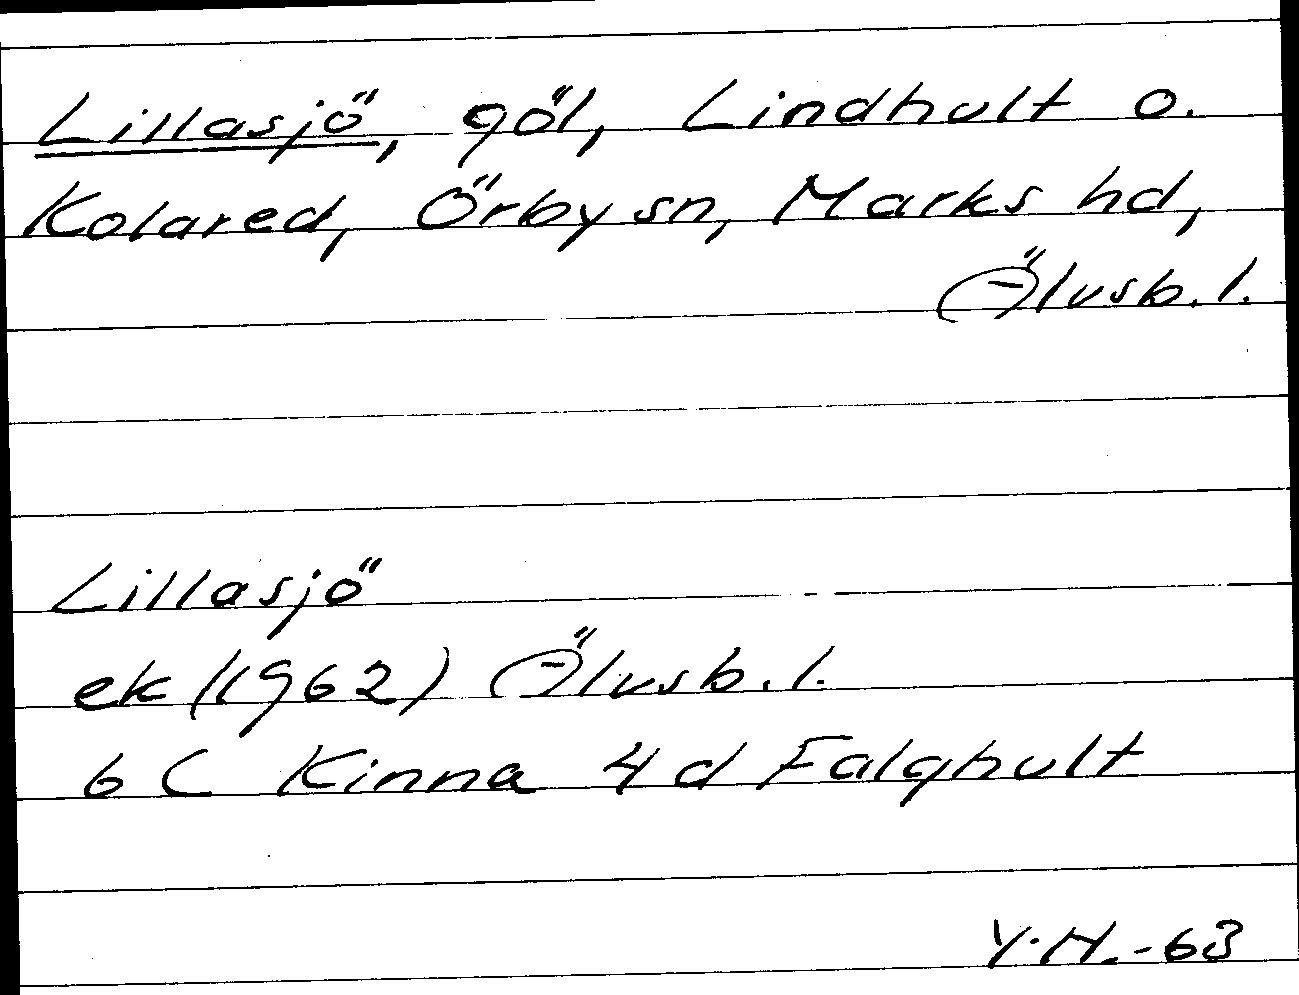 Lillasjö, göl, Lindhult o.
Kolared, Örby sn, Marks hd,
Älvsb. l.
Lillasjö
ek (1962) Älvsb. l.
6 C Kinna 4 d Falghult
Y.H.-63